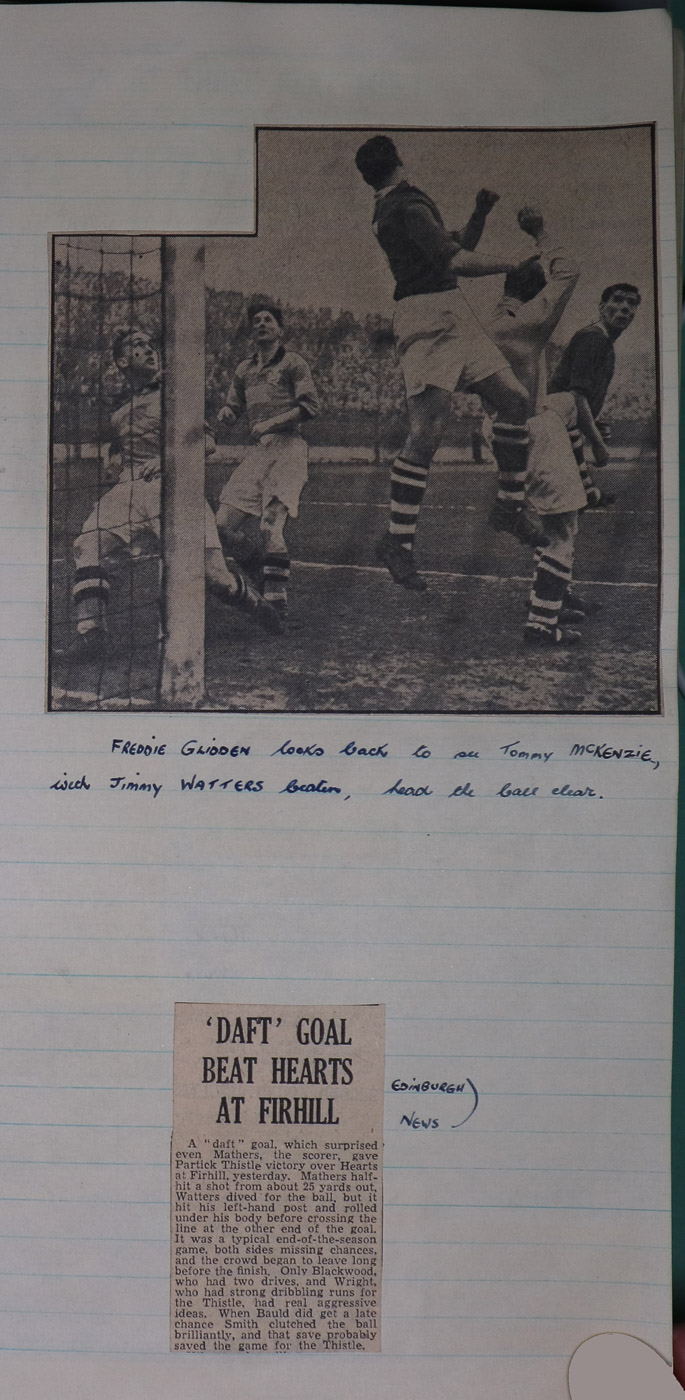 FREDDIE GLIDDEN looks back to see Tommy MCKENZIE,
with Jimmy WATTERS beaten, head the ball clear.
'DAFT' GOAL
BEAT HEARTS
AT FIRHILL
EDINBURGH
NEWS
A "daft" goal, which surprised
even Mathers, the scorer, gave
Partick Thistle victory over Hearts
at Firhill, yesterday. Mathers half-
hit a shot from about 25 yards out.
Watters dived for the ball, but it
hit his left-hand post and rolled
under his body before crossing the
line at the other end of the goal.
It was a typical end-of-the-season
game, both sides missing chances,
and the crowd began to leave long
before the finish. Only Blackwood,
who had two drives, and Wright,
who had strong dribbling runs for
the Thistle, had real aggressive
ideas. When Bauld did get a late
chance Smith clutched the ball
brilliantly, and that save probably
saved the game for the Thistle.